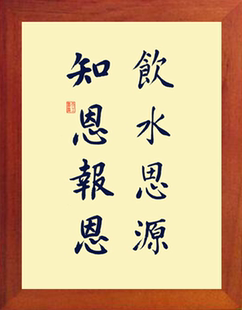 飲水思源
知恩報恩